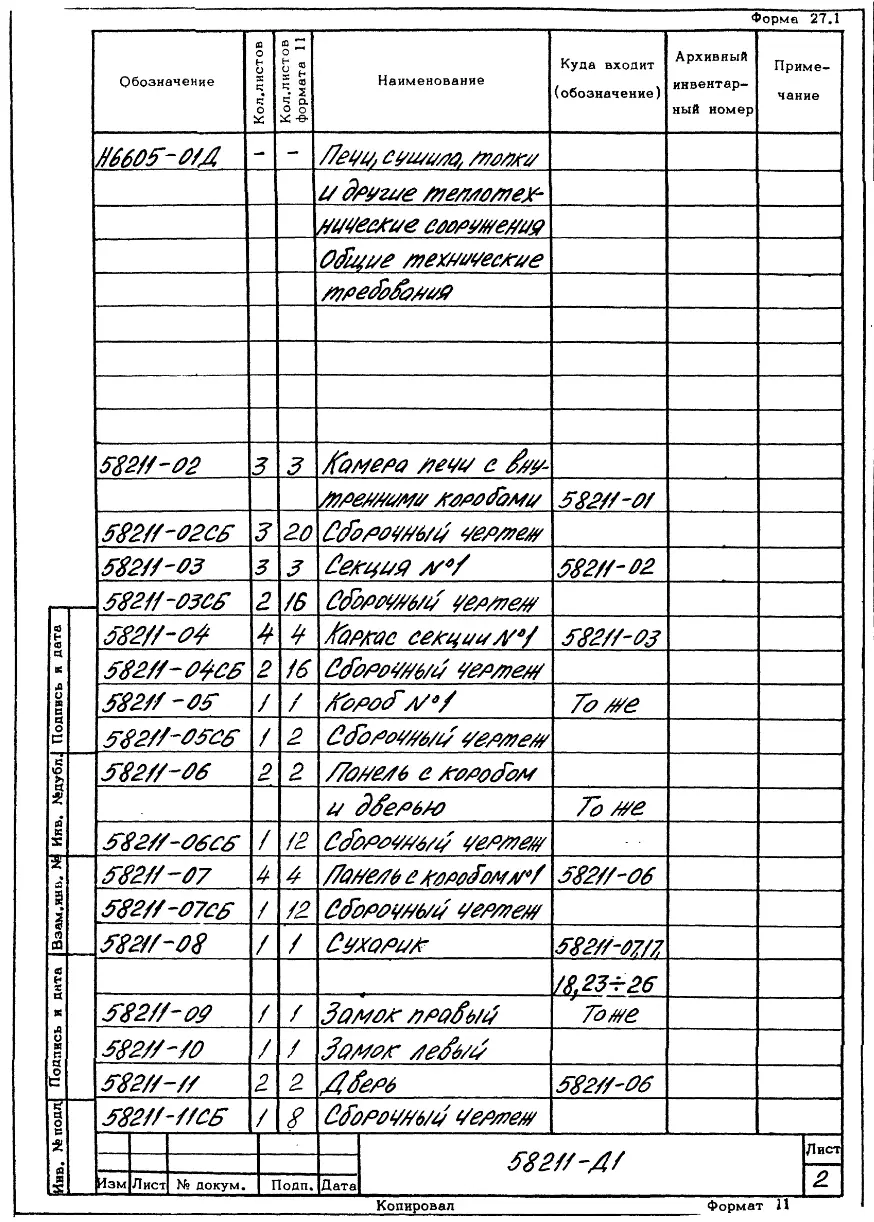 Форма 27.1
Обозначение Кол.листов Кол.листов формата 11 Наименование Куда входит (обозначение) Архивный инвентар- ный номер Приме- чание
Н6605-01Д - - Печи, сушила, топки
и другие теплотех-
нические сооружения
Общие технические
требования
58211-02 3 3 Камера печи с вну-
тренними коробами 58211-01
58211-02СБ 3 20 Сборочный чертеж
58211-03 3 3 Секция №1 58211-02
58211-03СБ 2 16 Сборочный чертеж
58211-04 4 4 Каркас секции №1 58211-03
58211-04СБ 2 16 Сборочный чертеж
58211-05 1 1 Короб №1 То же
58211-05СБ 1 2 Сборочный чертеж
58211-06 2 2 Панель с коробом
и дверью То же
58211-06СБ 1 12 Сборочный чертеж
58211-07 4 4 Панель с коробом №1 58211-06
58211-07СБ 1 12 Сборочный чертеж
58211-08 1 1 Сухарик 58211-07,17,
18,23÷26
58211-09 1 1 Замок правый То же
58211-10 1 1 Замок левый
58211-11 2 2 Дверь 58211-06
58211-11СБ 1 8 Сборочный чертеж
Подпись и дата
Инв. №дубл.
Взам.инв. №
Подпись и дата
Инв. №подл
58211-Д1
Лист
2
Изм Лист № докум. Подп. Дата
Копировал Формат 11